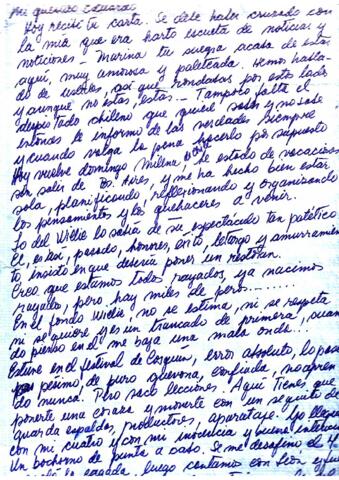 Mi querido Eduardo:
Hoy recibí tu carta. Se debe haber cruzado con
la mía que era harto escueta de noticias y
noticiones – Marina tu suegra acaba de estar
aquí, muy amorosa y paleteada. Hemos habla-
do de ustedes, así que rondados por este lado
y aunque no estás, estás – Tampoco falta el
despistado chileno que quiere saber y no sabe
entonces le informo de las verdades siempre
y cuando valga la pena hacerlo por supuesto
Hoy vuelve domingo Milena de estado de vacaciones
ser salir de Bs. Aires, y me ha hecho bien estar
sola, planificando, reflexionando y organizando
los pensamientos y los quehaceres a venir.
Lo del Willie lo sabía de su espectáculo tan patético
El, estas, pasado, honores, exito, letargo y amurramien
to insisto en que debería poner un restoran.
Creo que estamos todos rayados, ya nacimos
rayada, pero hay miles de pero........
En el fondo Willie, no se estima, ni se respeta
ni se quiere y es un trancado de primera, cuan
do pienso en el me baja una mala onda...
Estuve en el festival de Cosquin, error absoluto, lo pasé
pésimo, de puro quevona, confiada, no apren
do nunca. Pero saco lecciones. Aquí tienes que
ponerte una coraza y moverte con un séquito de
guarda espaldas, productores, aparataje. Yo llegué
con mi cuatro y con mi inocencia y buena intención
Un bochorno de punta a cabo. Se me desafinó el 4
la cagada, luego cantamos con León